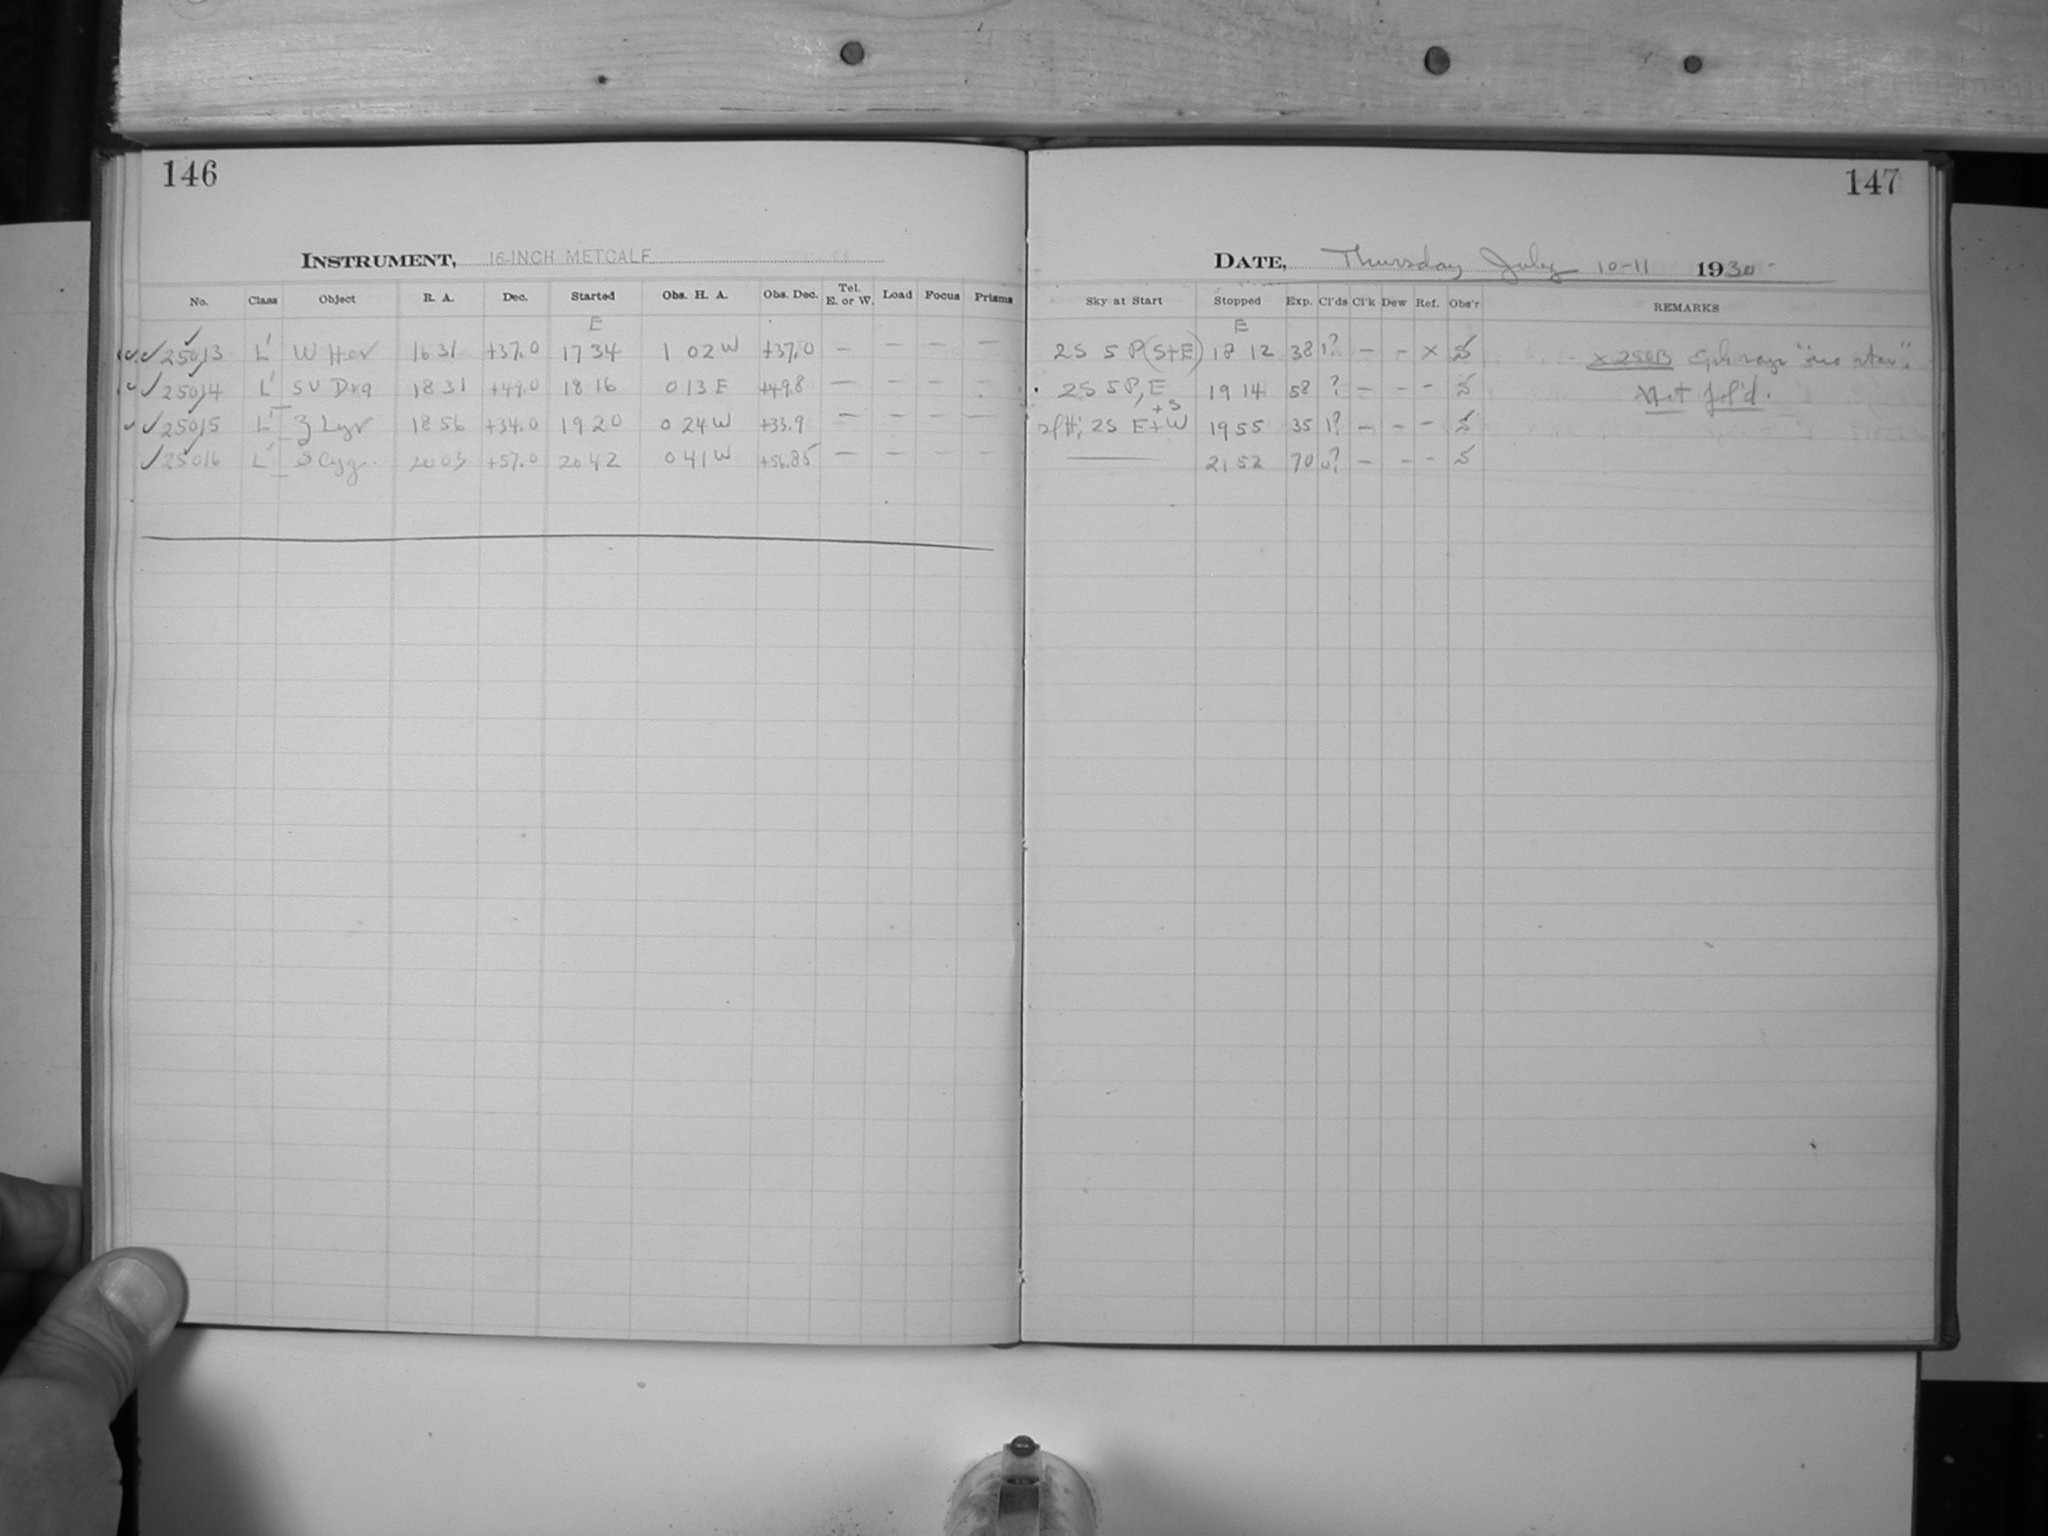 146
INSTRUMENT, 16-INCH METCALF
No. Class Object R. A. Dec. Started Obs. H. A. Obs. Dec. Tel. E. or W. Load Focus Prisms
E
25013 L' W Her 16 31 +37.0 17 34 1 02 W +37.0 — — — —
25014 L' SV Dra 18 31 +49.0 18 16 0 13 E +49.8 — — — —
25015 L' Z Lyr 18 56 +34.0 19 20 0 24 W +33.9 — — — —
25016 L' S Cyg. 20 03 +57.0 20 42 0 41 W +56.85 — — — —
147
DATE, Thursday July 10-11 1930
Sky at Start Stopped Exp. Cl'ds Cl'k Dew Ref. Obs'r REMARKS
E
2S 5 P (S+E) 18 12 38 1? — — x "no star".
2S 5P, E 19 14 58 ? — — — Not fol'd.
+ S
2S E+W 19 55 35 1? — — —
— 21 52 70 ? — — —